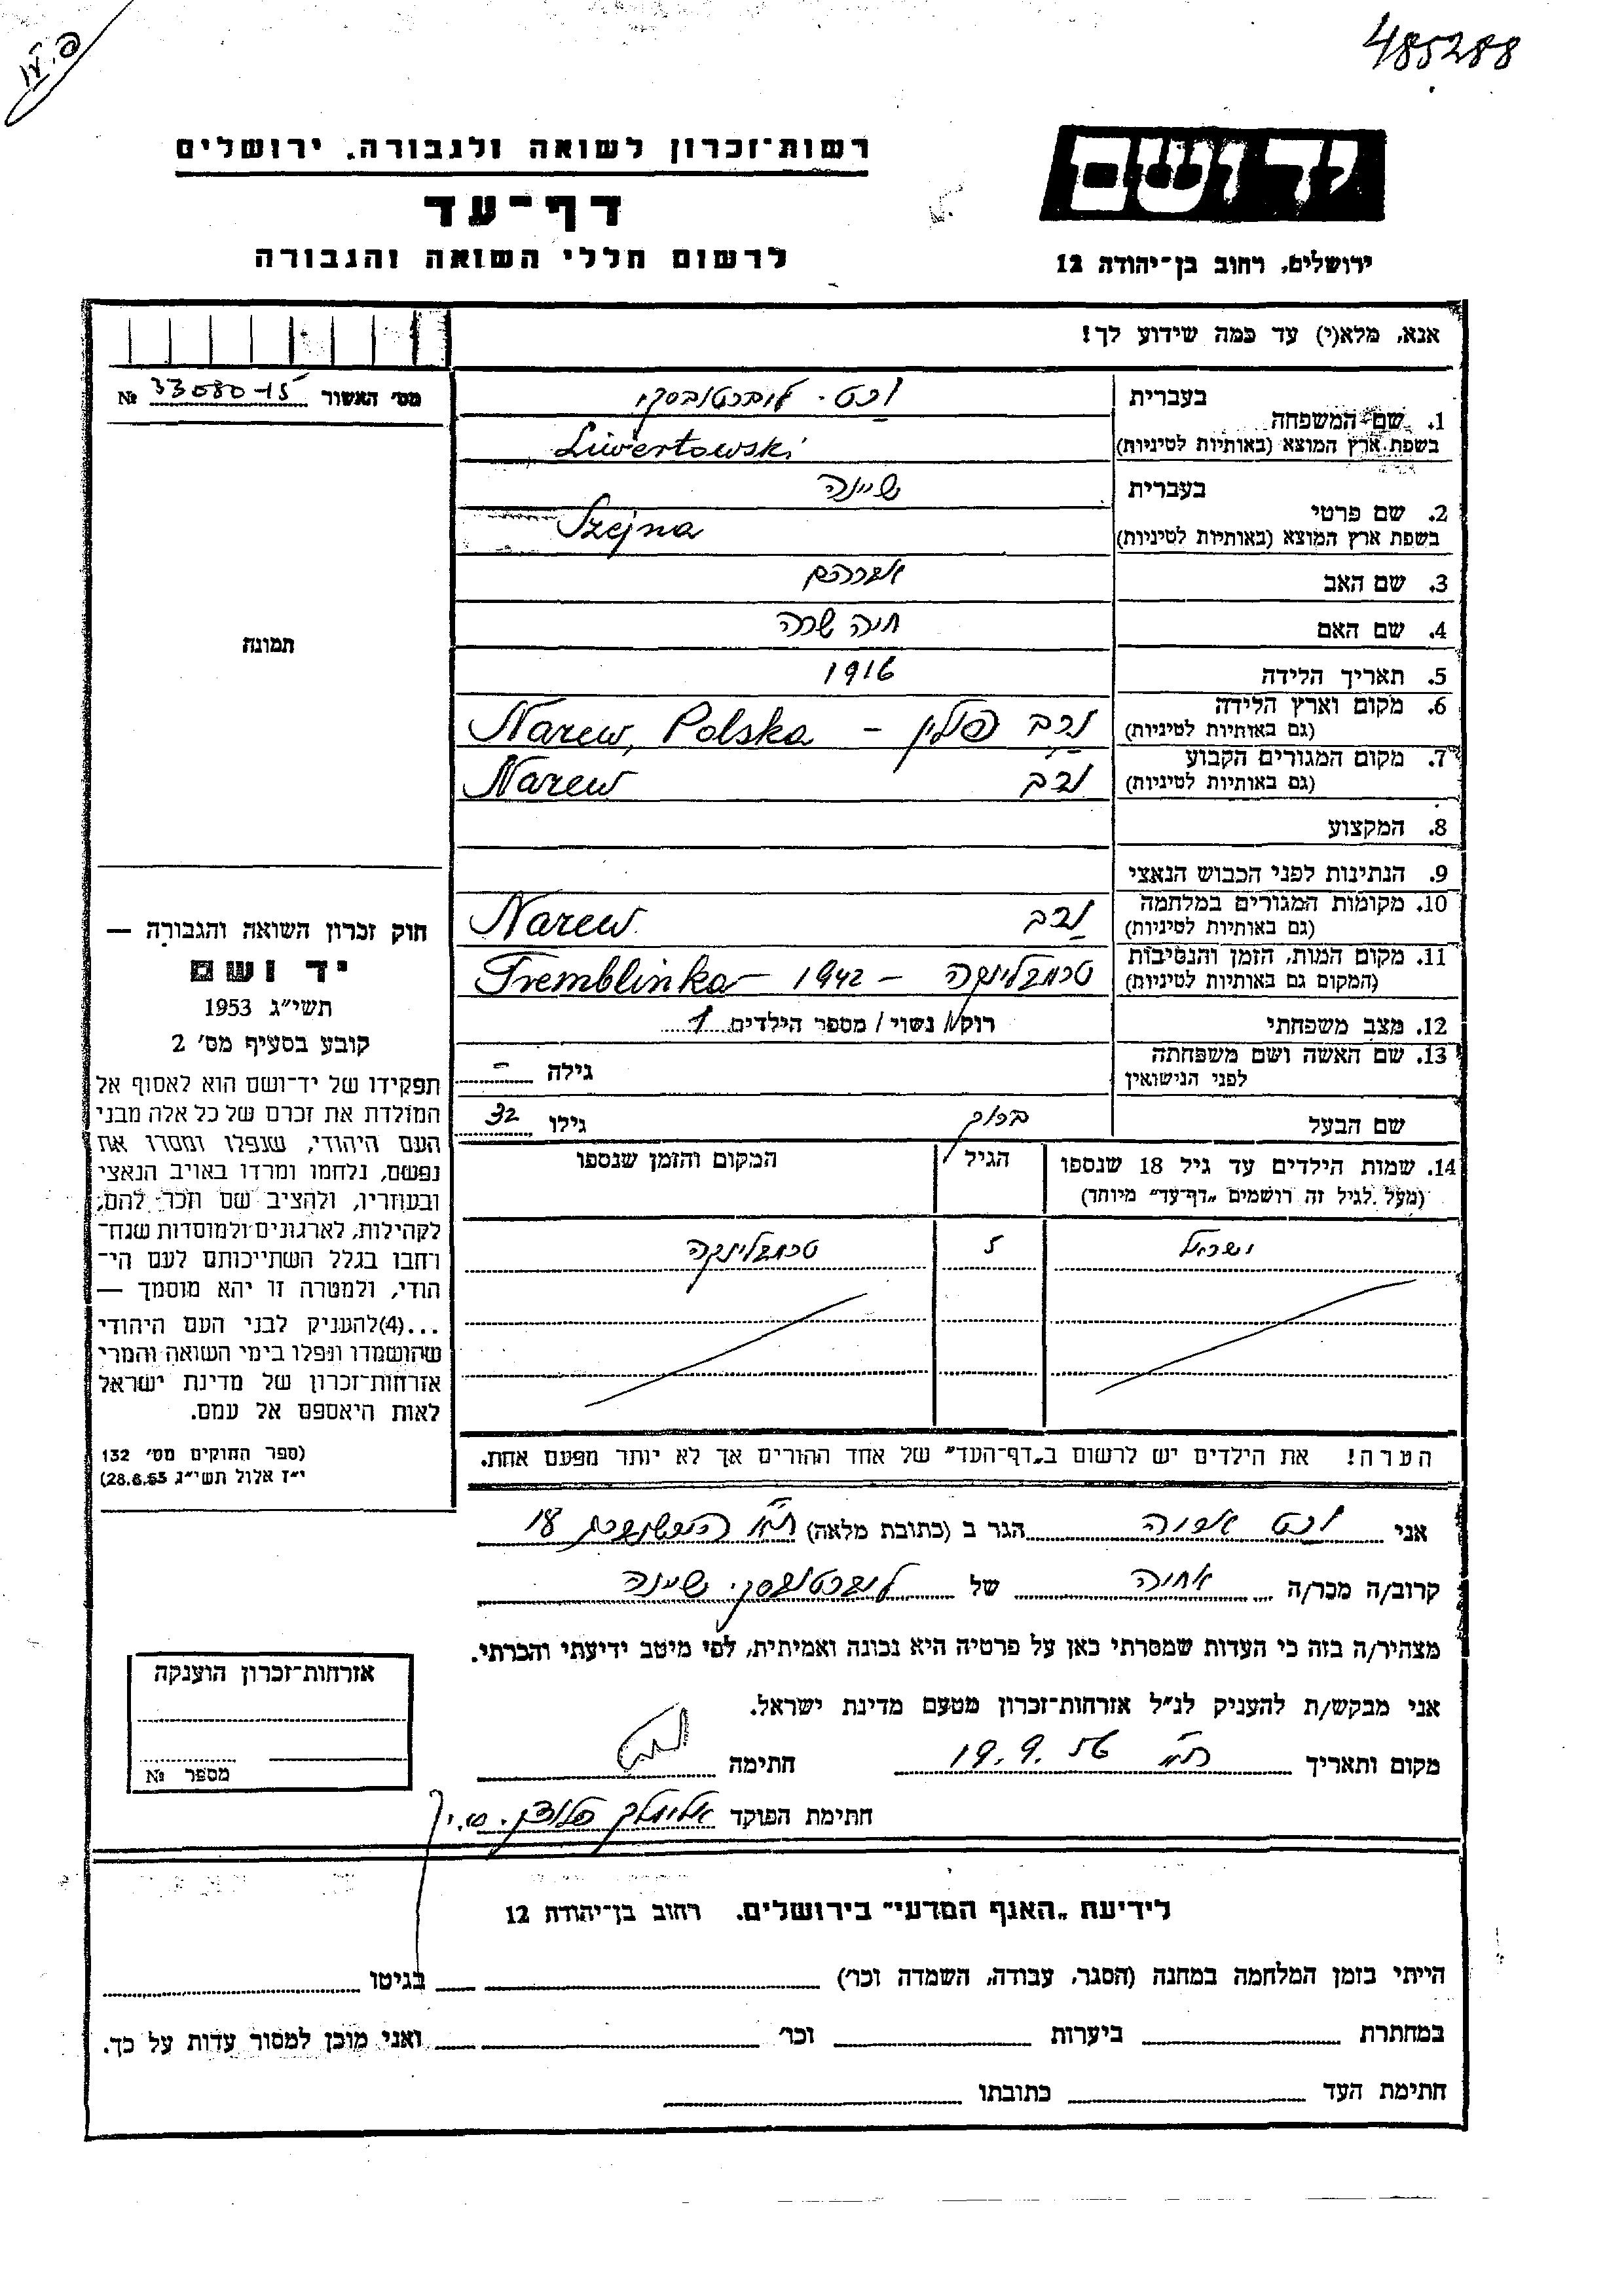 485288
רשות־זכרון לשואה ולגבורה. ירושלים
יד ושם
דף־עד
לרשום חללי השואה והגבורה
ירושלים, רחוב בן־יהודה 12
אנא, מלא(י) עד כמה שידוע לך!
מס׳ האשור № 33080-15
1. שם המשפחה
בעברית וכט - ליברטובסקי
בשפת ארץ המוצא (באותיות לטיניות) Liwertowski
2. שם פרטי
בעברית שיינה
בשפת ארץ המוצא (באותיות לטיניות) Szejna
3. שם האב אברהם
4. שם האם חיה שרה
5. תאריך הלידה 1916
6. מקום וארץ הלידה נרב פולין - Narew, Polska
(גם באותיות לטיניות)
7. מקום המגורים הקבוע נרב Narew
(גם באותיות לטיניות)
8. המקצוע
9. הנתינות לפני הכבוש הנאצי
10. מקומות המגורים במלחמה נרב Narew
(גם באותיות לטיניות)
11. מקום המות, הזמן והנסיבות טרמבלינקה - 1942 - Tremblinka
(המקום גם באותיות לטיניות)
12. מצב משפחתי רוק/ נשוי / מספר הילדים 1
13. שם האשה ושם משפחתה גילה -
לפני הנישואין
שם הבעל ברוך גילו 32
14. שמות הילדים עד גיל 18 שנספו הגיל המקום והזמן שנספו
(מעל לגיל זה רושמים „דף־עד״ מיוחד)
ישראל 5 טרמבלינקה
הערה! את הילדים יש לרשום ב„דף־העד״ של אחד ההורים אך לא יותר מפעם אחת.
תמונה
חוק זכרון השואה והגבורה —
יד ושם
תשי״ג 1953
קובע בסעיף מס׳ 2
תפקידו של יד־ושם הוא לאסוף אל
המולדת את זכרם של כל אלה מבני
העם היהודי, שנפלו ומסרו את
נפשם, נלחמו ומרדו באויב הנאצי
ובעוזריו, ולהציב שם וזכר להם,
לקהילות, לארגונים ולמוסדות שנח־
רחבו בגלל השתייכותם לעם הי־
הודי, ולמטרה זו יהא מוסמך —
...(4) להעניק לבני העם היהודי
שהושמדו ונפלו בימי השואה והמרי
אזרחות־זכרון של מדינת ישראל
לאות היאספם אל עמם.
(ספר החוקים מס׳ 132
י״ז אלול תשי״ג 28.8.53)
אני וכט הגר ב (כתובת מלאה) 18
קרוב/ה מכר/ה אחיה של ליברטובסקי שיינה
מצהיר/ה בזה כי העדות שמסרתי כאן על פרטיה היא נכונה ואמיתית, לפי מיטב ידיעתי והכרתי.
אני מבקש/ת להעניק לנ״ל אזרחות־זכרון מטעם מדינת ישראל.
מקום ותאריך ת״א 19.9.56 חתימה
חתימת הפוקד אלימלך
אזרחות־זכרון הוענקה
מספר №
לידיעת „האגף המדעי״ בירושלים. רחוב בן־יהודה 12
הייתי בזמן המלחמה במחנה (הסגר, עבודה, השמדה וכו׳) בגיטו
במחתרת ביערות וכו׳ ואני מוכן למסור עדות על כך.
חתימת העד כתובתו